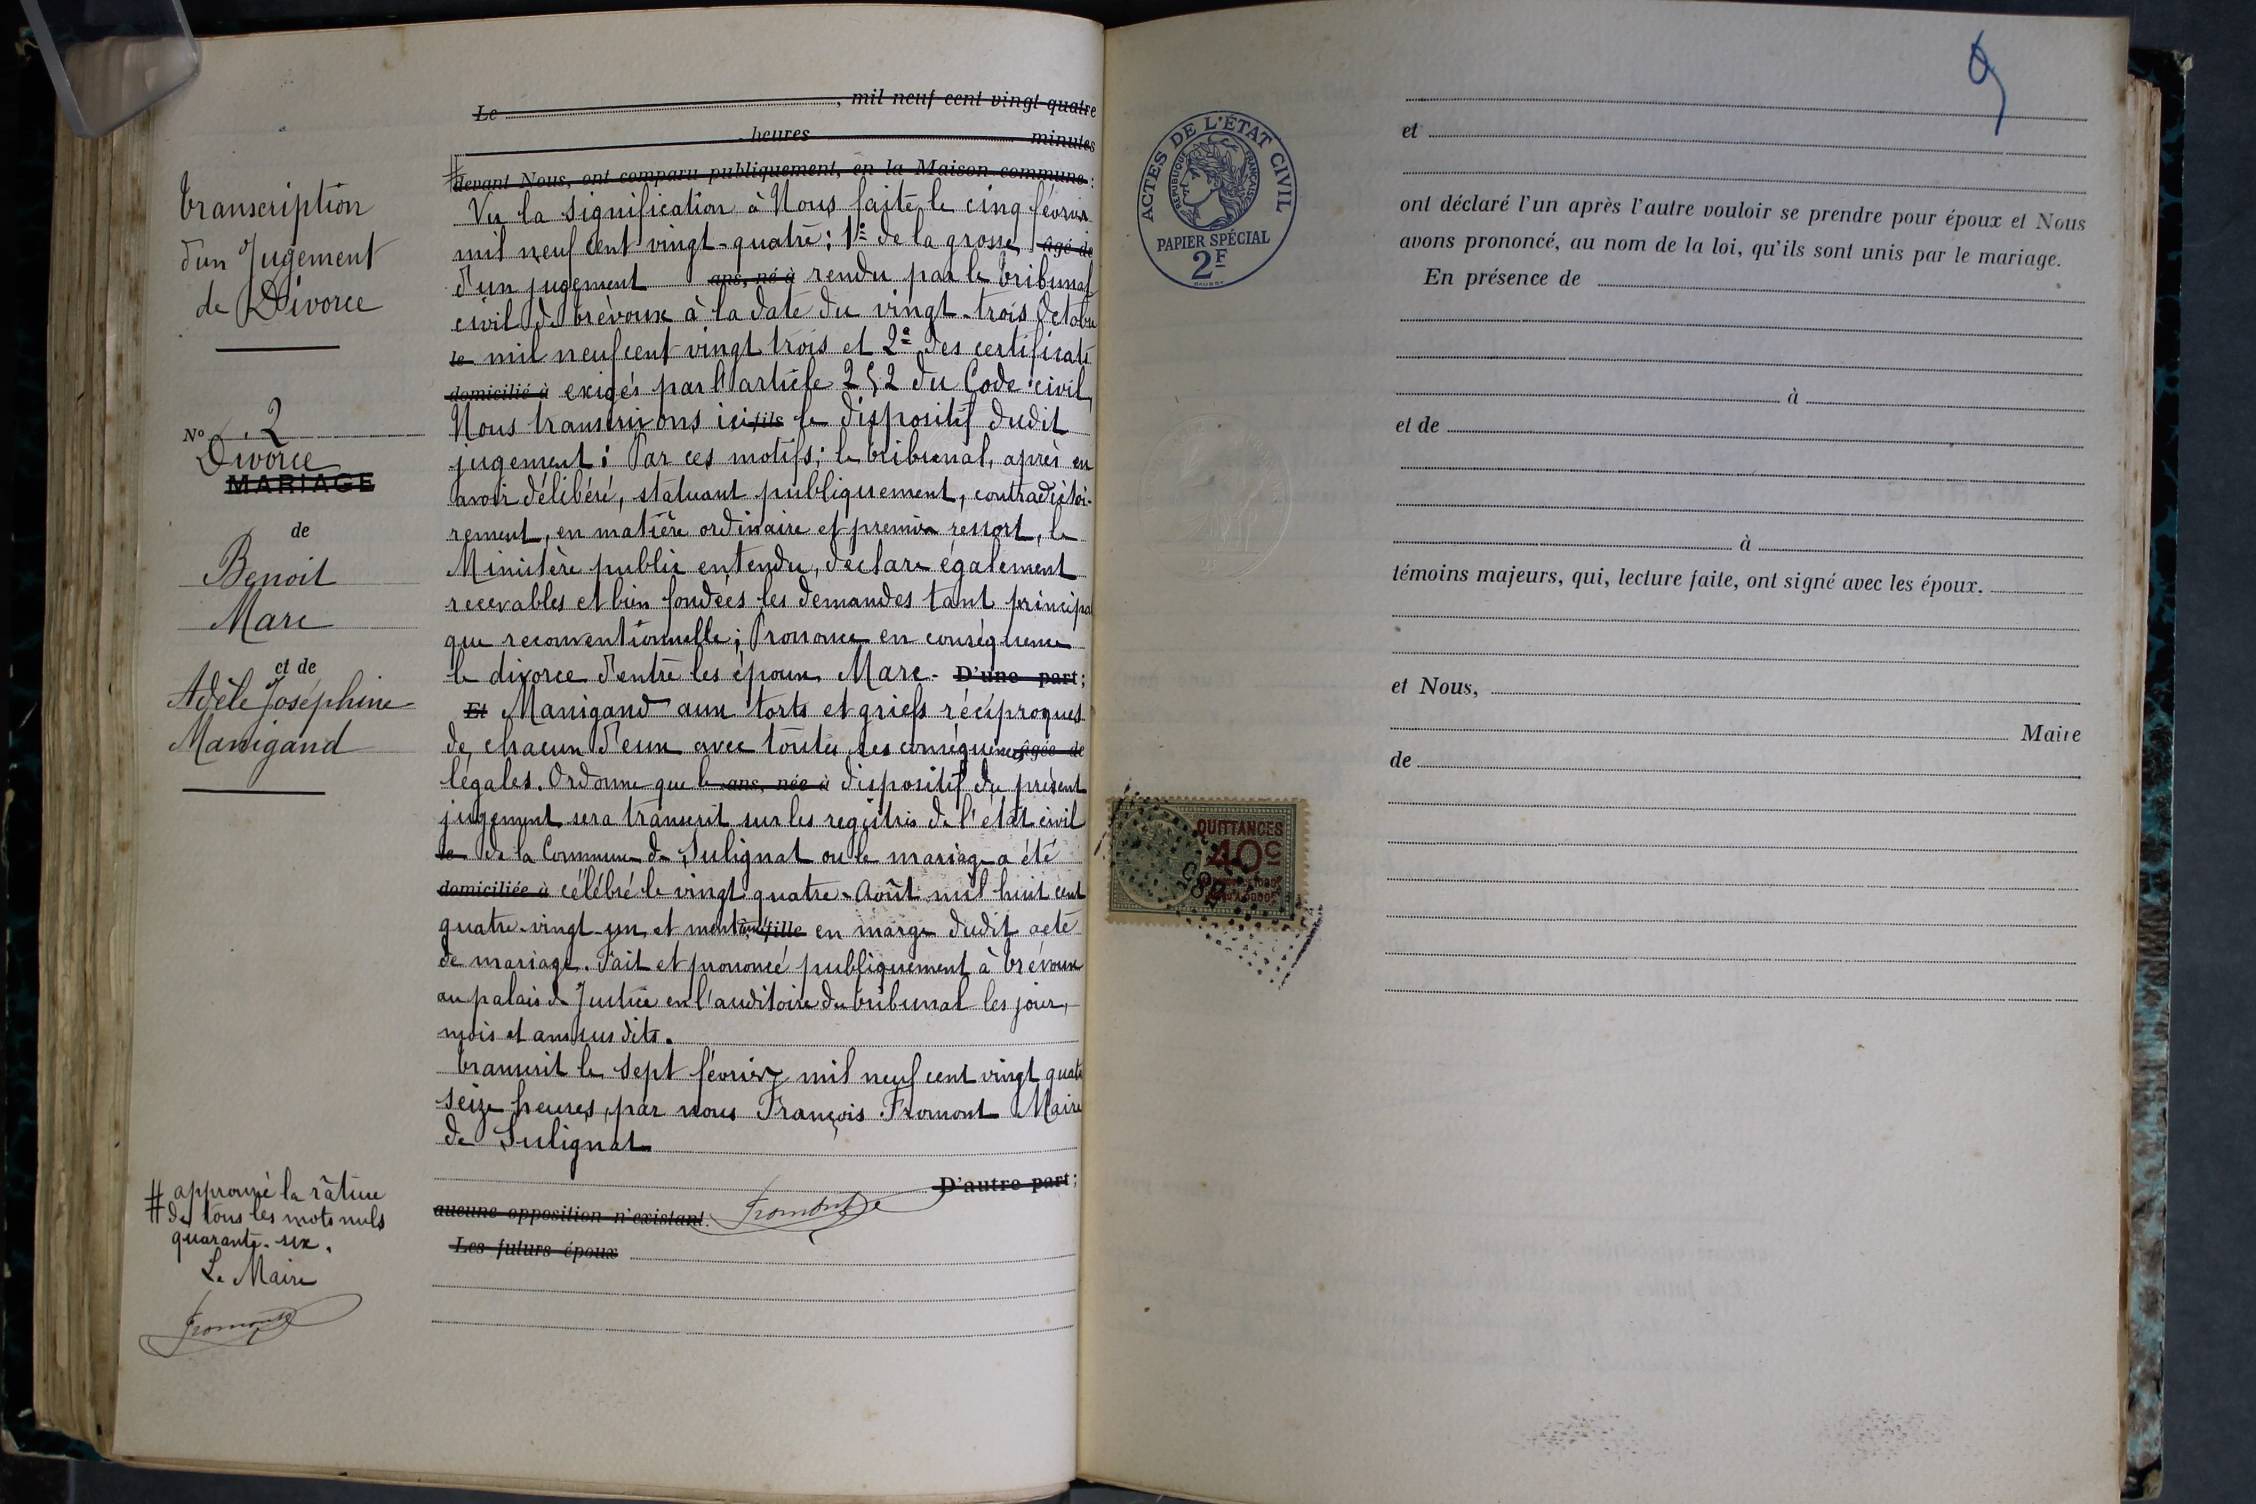 Transcription
d'un Jugement
de Divorce
No 2
Divorce
MARIAGE
de
Benoit
Marc
et de
Adèle Joséphine
Manigand
# approuvé la râture
# de tous les mots nuls
quarante-six.
Le Maire
Fromont
Le , mil neuf cent vingt-quatre
heures minutes
# devant Nous, ont comparu publiquement, en la Maison commune :
Vu la signification à Nous faite le cinq février
mil neuf cent vingt-quatre; 1º de la grosse âgé de
d'un jugement ans, né à rendu par le tribunal
civil de Trévoux à la date du vingt-trois Octobre
le mil neuf cent vingt trois et 2º des certificats
domicilié à exigés par l'article 252 du Code civil,
Nous transcrivons ici fils le dispositif dudit
jugement: Par ces motifs; le tribunal, après en
avoir délibéré, statuant publiquement, contradictoi-
rement, en matière ordinaire et premier ressort, le
Ministère public entendu, déclare également
recevables et bien fondées les demandes tant principa
que reconventionnelle; Prononce en conséquence
le divorce d'entre les époux Marc- D'une part;
Et Manigand aux torts et griefs réciproques
de chacun d'eux avec toutes ses conséquences âgée de
légales. Ordonne que le ans, née à dispositif du présent
jugement sera transcrit sur les registres de l'état civil
le de la Commune de Sulignat ou le mariage a été
domiciliée à célébré le vingt quatre Août mil huit cent
quatre-vingt-un, et mentionné fille en marge dudit acte
de mariage. Fait et prononcé publiquement à Trévoux
au palais de Justice en l'auditoire du tribunal les jour,
mois et an susdits.
Transcrit le sept février mil neuf cent vingt quatre
seize heures, par nous François Fromont Maire
de Sulignat
D'autre part;
aucune opposition n'existant. Fromont
Les futurs époux
9
ACTES DE L'ÉTAT CIVIL
RÉPUBLIQUE FRANÇAISE
PAPIER SPÉCIAL
2F
QUITTANCES
40c
et
ont déclaré l'un après l'autre vouloir se prendre pour époux et Nous
avons prononcé, au nom de la loi, qu'ils sont unis par le mariage.
En présence de
à
et de
à
témoins majeurs, qui, lecture faite, ont signé avec les époux.
et Nous,
Maire
de